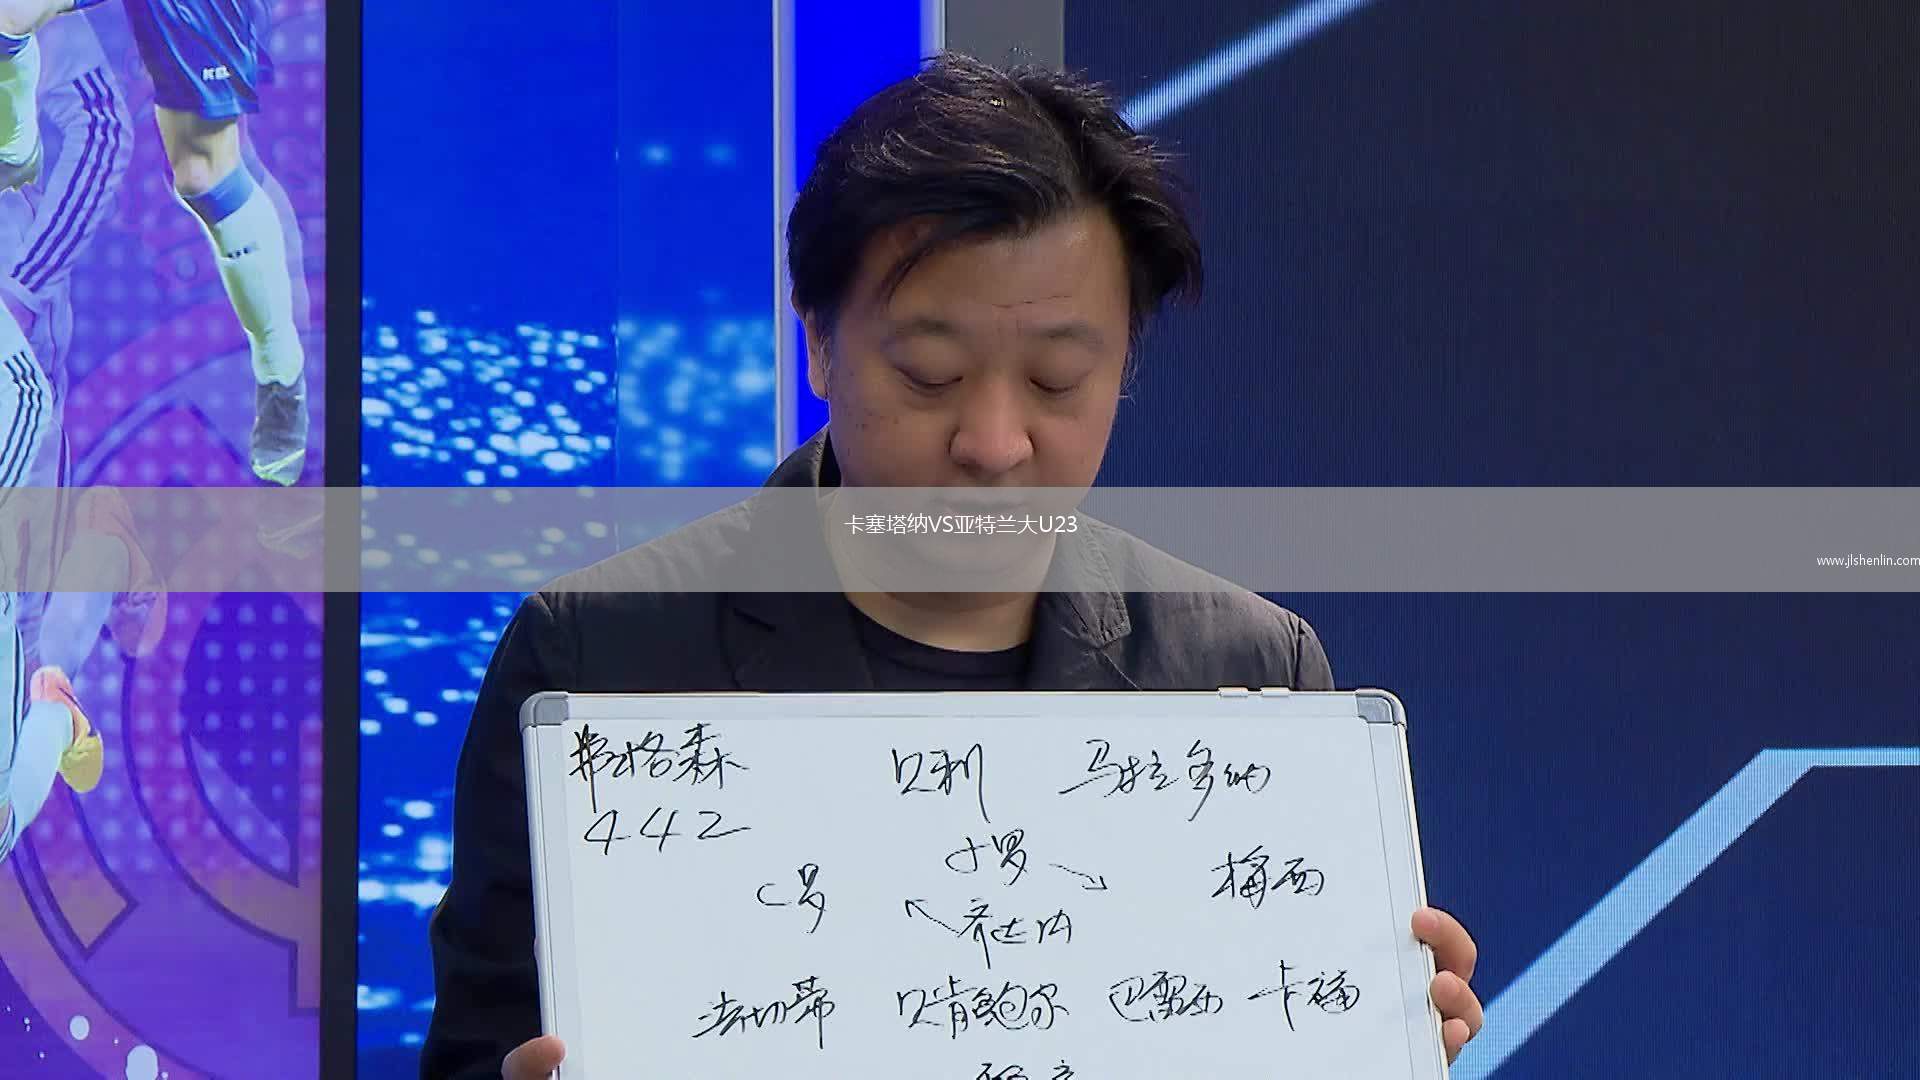 KELME
卡塞塔纳VS亚特兰大U23
www.jlshenlin.com
弗格森 贝利 马拉多纳
442
小罗
C罗 梅西
齐达内
法切蒂 贝肯鲍尔 巴雷西 卡福